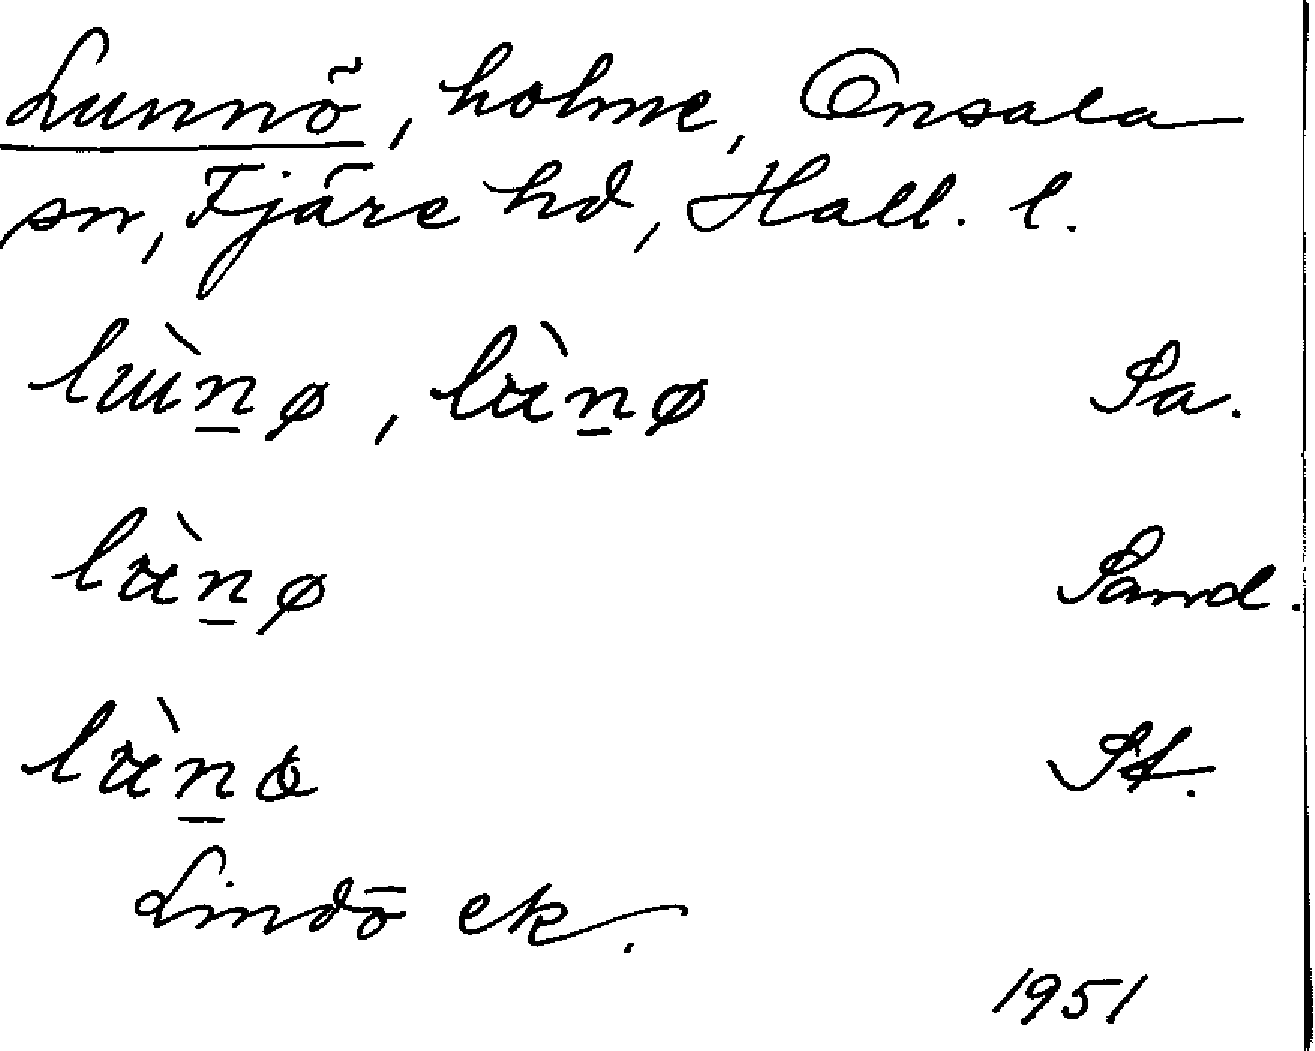 Lunnö, holme, Onsala
sn, Fjäre hd, Hall. l.
lɯ̀n̲ø, làn̲ø Sa.
làn̲ø Sand.
St.
Lindö ek.
1951